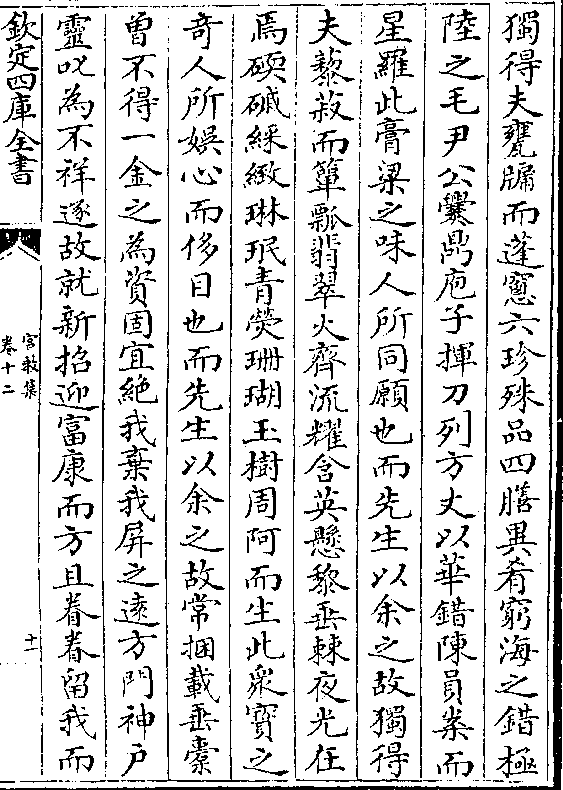 獨得夫甕牖而蓬窻六珍殊品四膳異肴窮海之錯極
陸之毛尹公爨鼎庖子揮刀列方丈以華錯陳員案而
星羅此膏粱之味人所同願也而先生以余之故獨得
夫藜菽而簞瓢翡翠火齊流耀含英懸黎垂棘夜光在
焉碝磩綵緻琳珉青熒珊瑚玉樹周阿而生此衆寶之
奇人所娛心而侈目也而先生以余之故常捆載垂橐
曽不得一金之為資固宜絶我棄我屏之逺方門神戶
靈叱為不祥遂故就新招迎富康而方且眷眷留我而
欽定四庫全書
宮教集
卷十二
十一